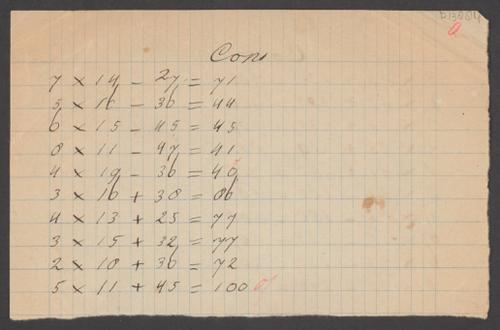 7 × 14 – 27 = 71
5 × 16 – 36 = 44
6 × 15 – 45 = 45
8 × 11 – 47 = 41
4 × 19 – 36 = 40
3 × 16 + 38 = 86
4 × 13 + 25 = 77
3 × 15 + 32 = 77
2 × 18 + 36 = 72
5 × 11 + 45 = 100